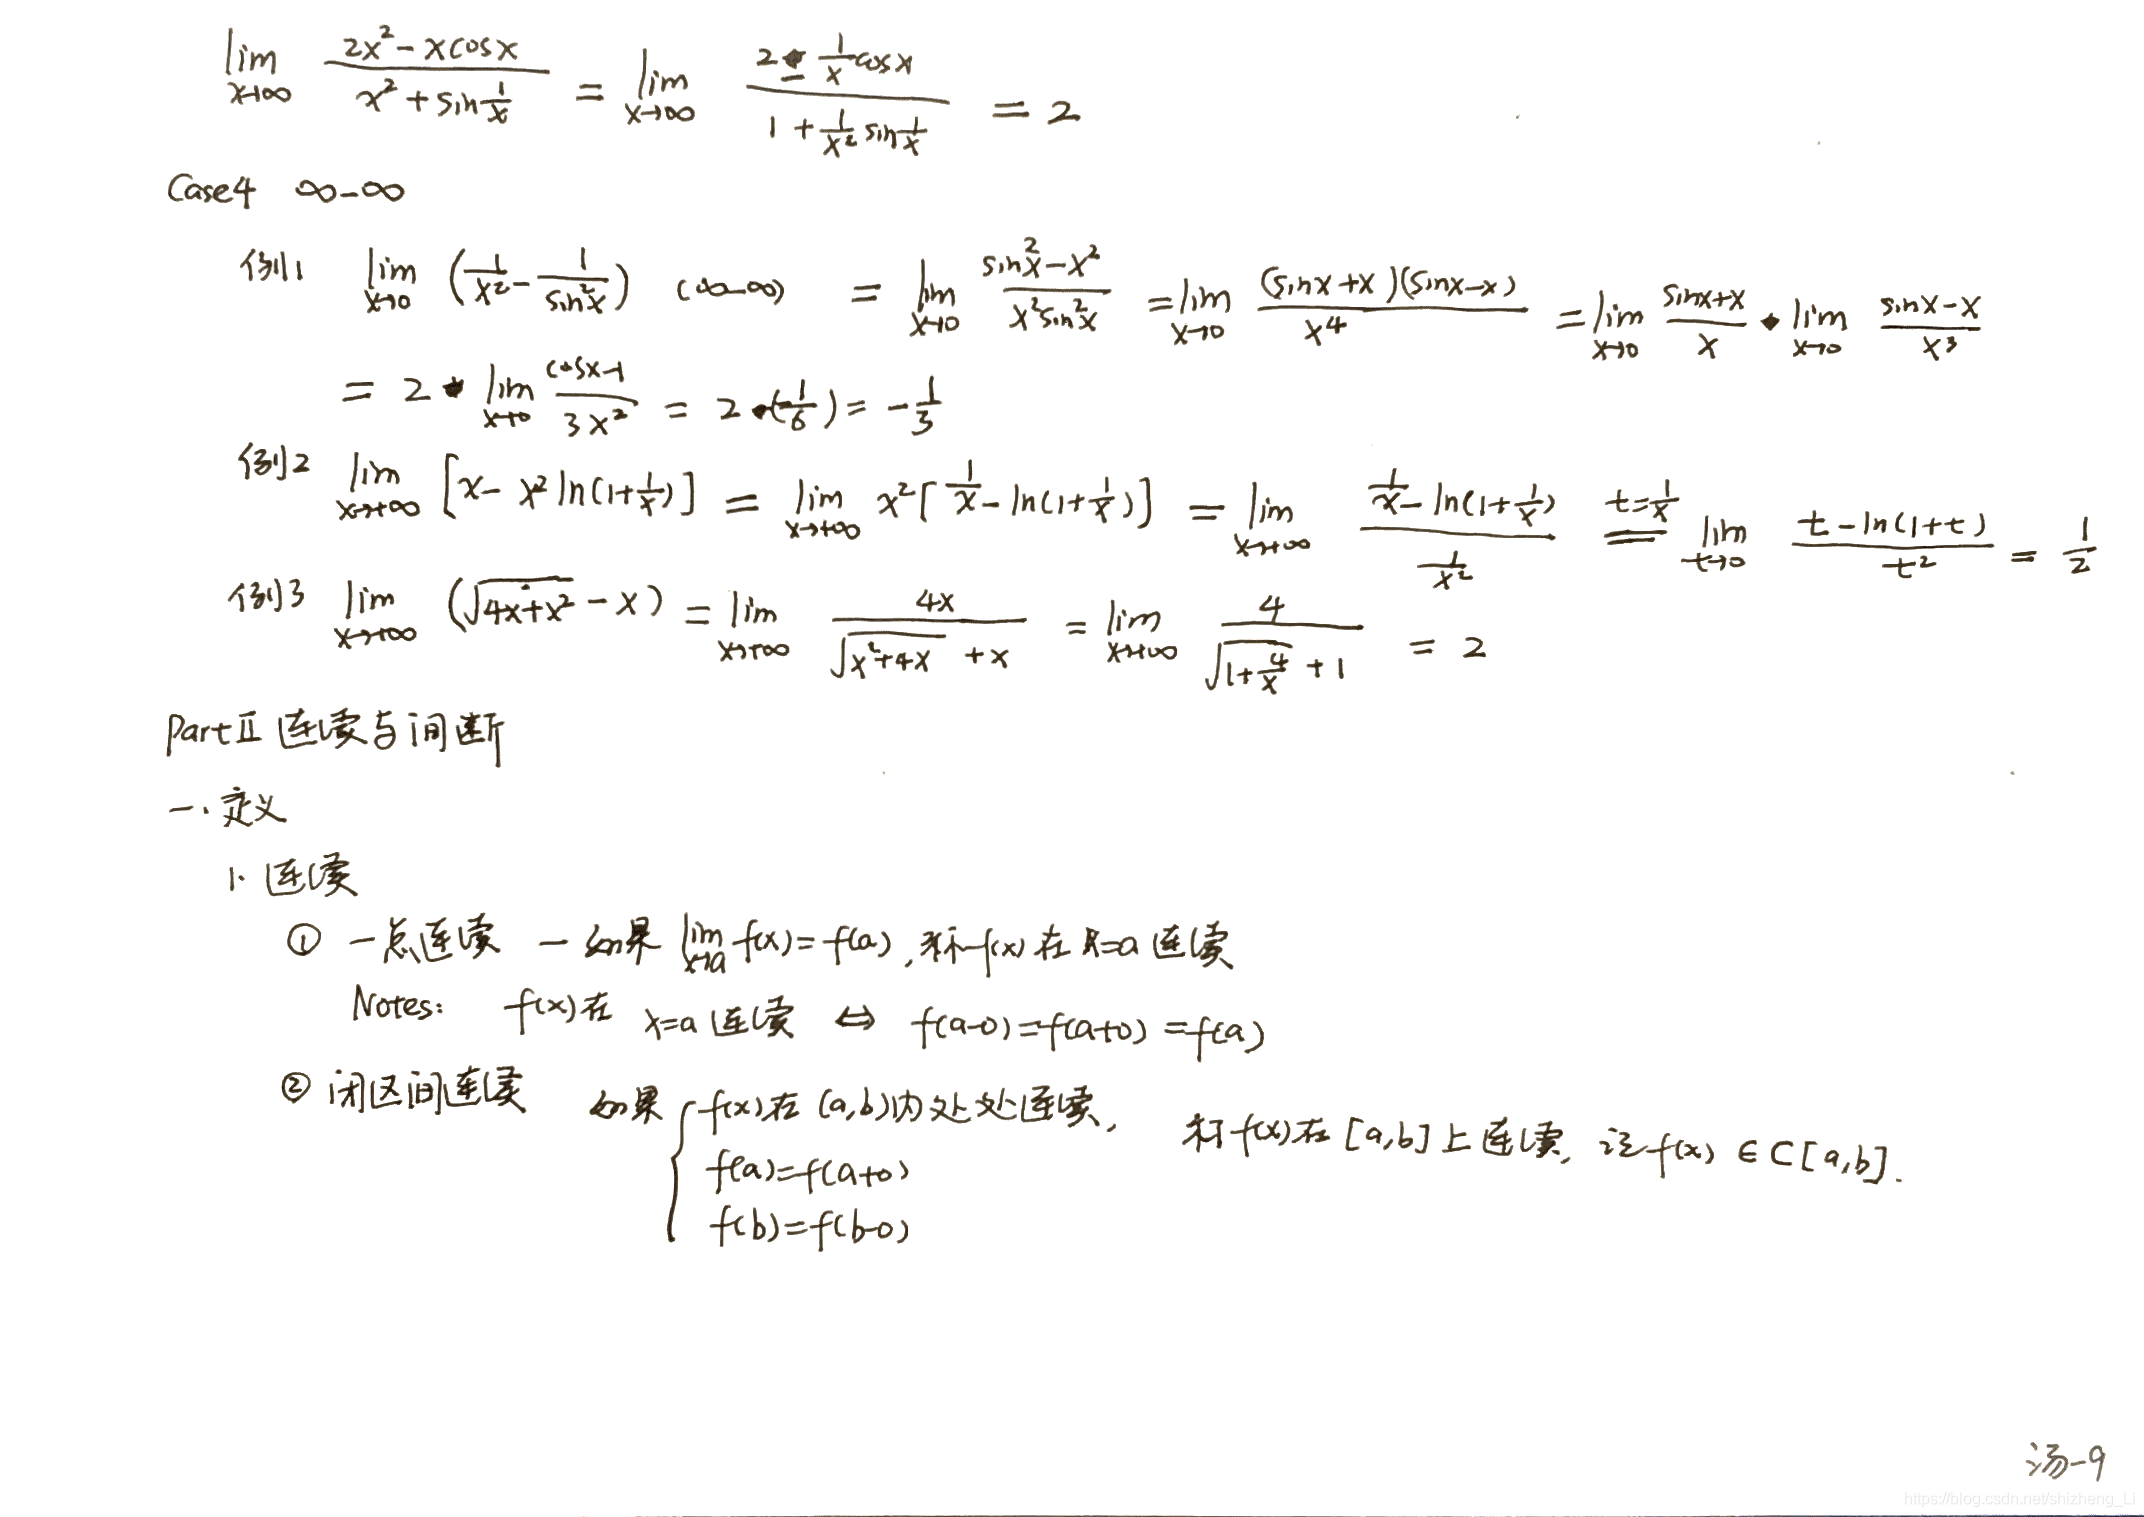 lim x→∞ (2x²-xcosx)/(x²+sin 1/x) = lim x→∞ (2-1/x cosx)/(1+1/x² sin 1/x) = 2
Case4 ∞-∞
例1 lim x→0 (1/x² - 1/sin²x) (∞-∞) = lim x→0 (sin²x-x²)/(x²sin²x) = lim x→0 (sinx+x)(sinx-x)/x⁴ = lim x→0 (sinx+x)/x · lim x→0 (sinx-x)/x³
= 2 · lim x→0 (cosx-1)/3x² = 2·(-1/6) = -1/3
例2 lim x→+∞ [x-x²ln(1+1/x)] = lim x→+∞ x²[1/x-ln(1+1/x)] = lim x→+∞ (1/x-ln(1+1/x))/(1/x²) t=1/x = lim t→0 (t-ln(1+t))/t² = 1/2
例3 lim x→+∞ (√(4x+x²)-x) = lim x→+∞ 4x/(√(x²+4x)+x) = lim x→+∞ 4/(√(1+4/x)+1) = 2
Part Ⅱ 连续与间断
一.定义
1. 连续
① 一点连续 — 如果 lim x→a f(x)=f(a),称f(x)在x=a连续
Notes: f(x)在 x=a连续 ⇔ f(a-0)=f(a+0)=f(a)
② 闭区间连续 如果 { f(x)在(a,b)内处处连续, 称f(x)在[a,b]上连续,记f(x)∈C[a,b].
f(a)=f(a+0)
f(b)=f(b-0)
汤-9
https://blog.csdn.net/shizheng_Li